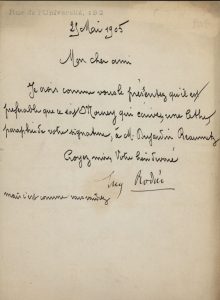 Rue de l'Université, 182
29 Mai 1905
Mon cher ami
Je crois comme vous le présentez qu'il est
préférable que ce soit Morey qui écrive, une lettre,
paraphée de votre signature, à M. Dujardin Beaumetz
Croyez moi, Votre bien dévoué
Rodin
mais c'est comme vous voudrez